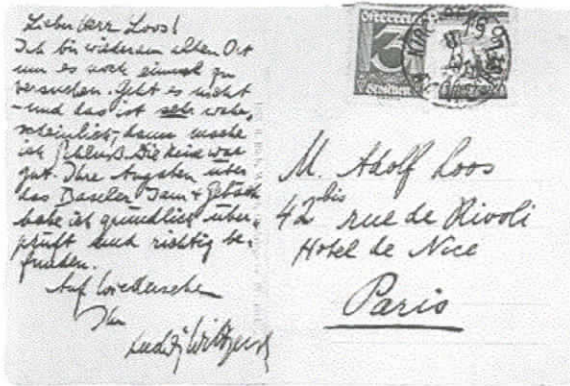 Lieber Herr Loos!
Ich bin wieder am alten Ort
um es noch einmal zu
versuchen. Geht es nicht
- und das ist sehr wahr-
scheinlich, dann mache
ich Schluß. Die war
gut. Ihre Angaben über
das Baseler Jam + Gebäck
habe ich gründlich über-
prüft und richtig be-
funden.
Auf Wiedersehen
Ihr
Ludwig Wittgenst
Österreich
3
Groschen
M. Adolf Loos
42 bis rue de Rivoli
Hotel de Nice
Paris